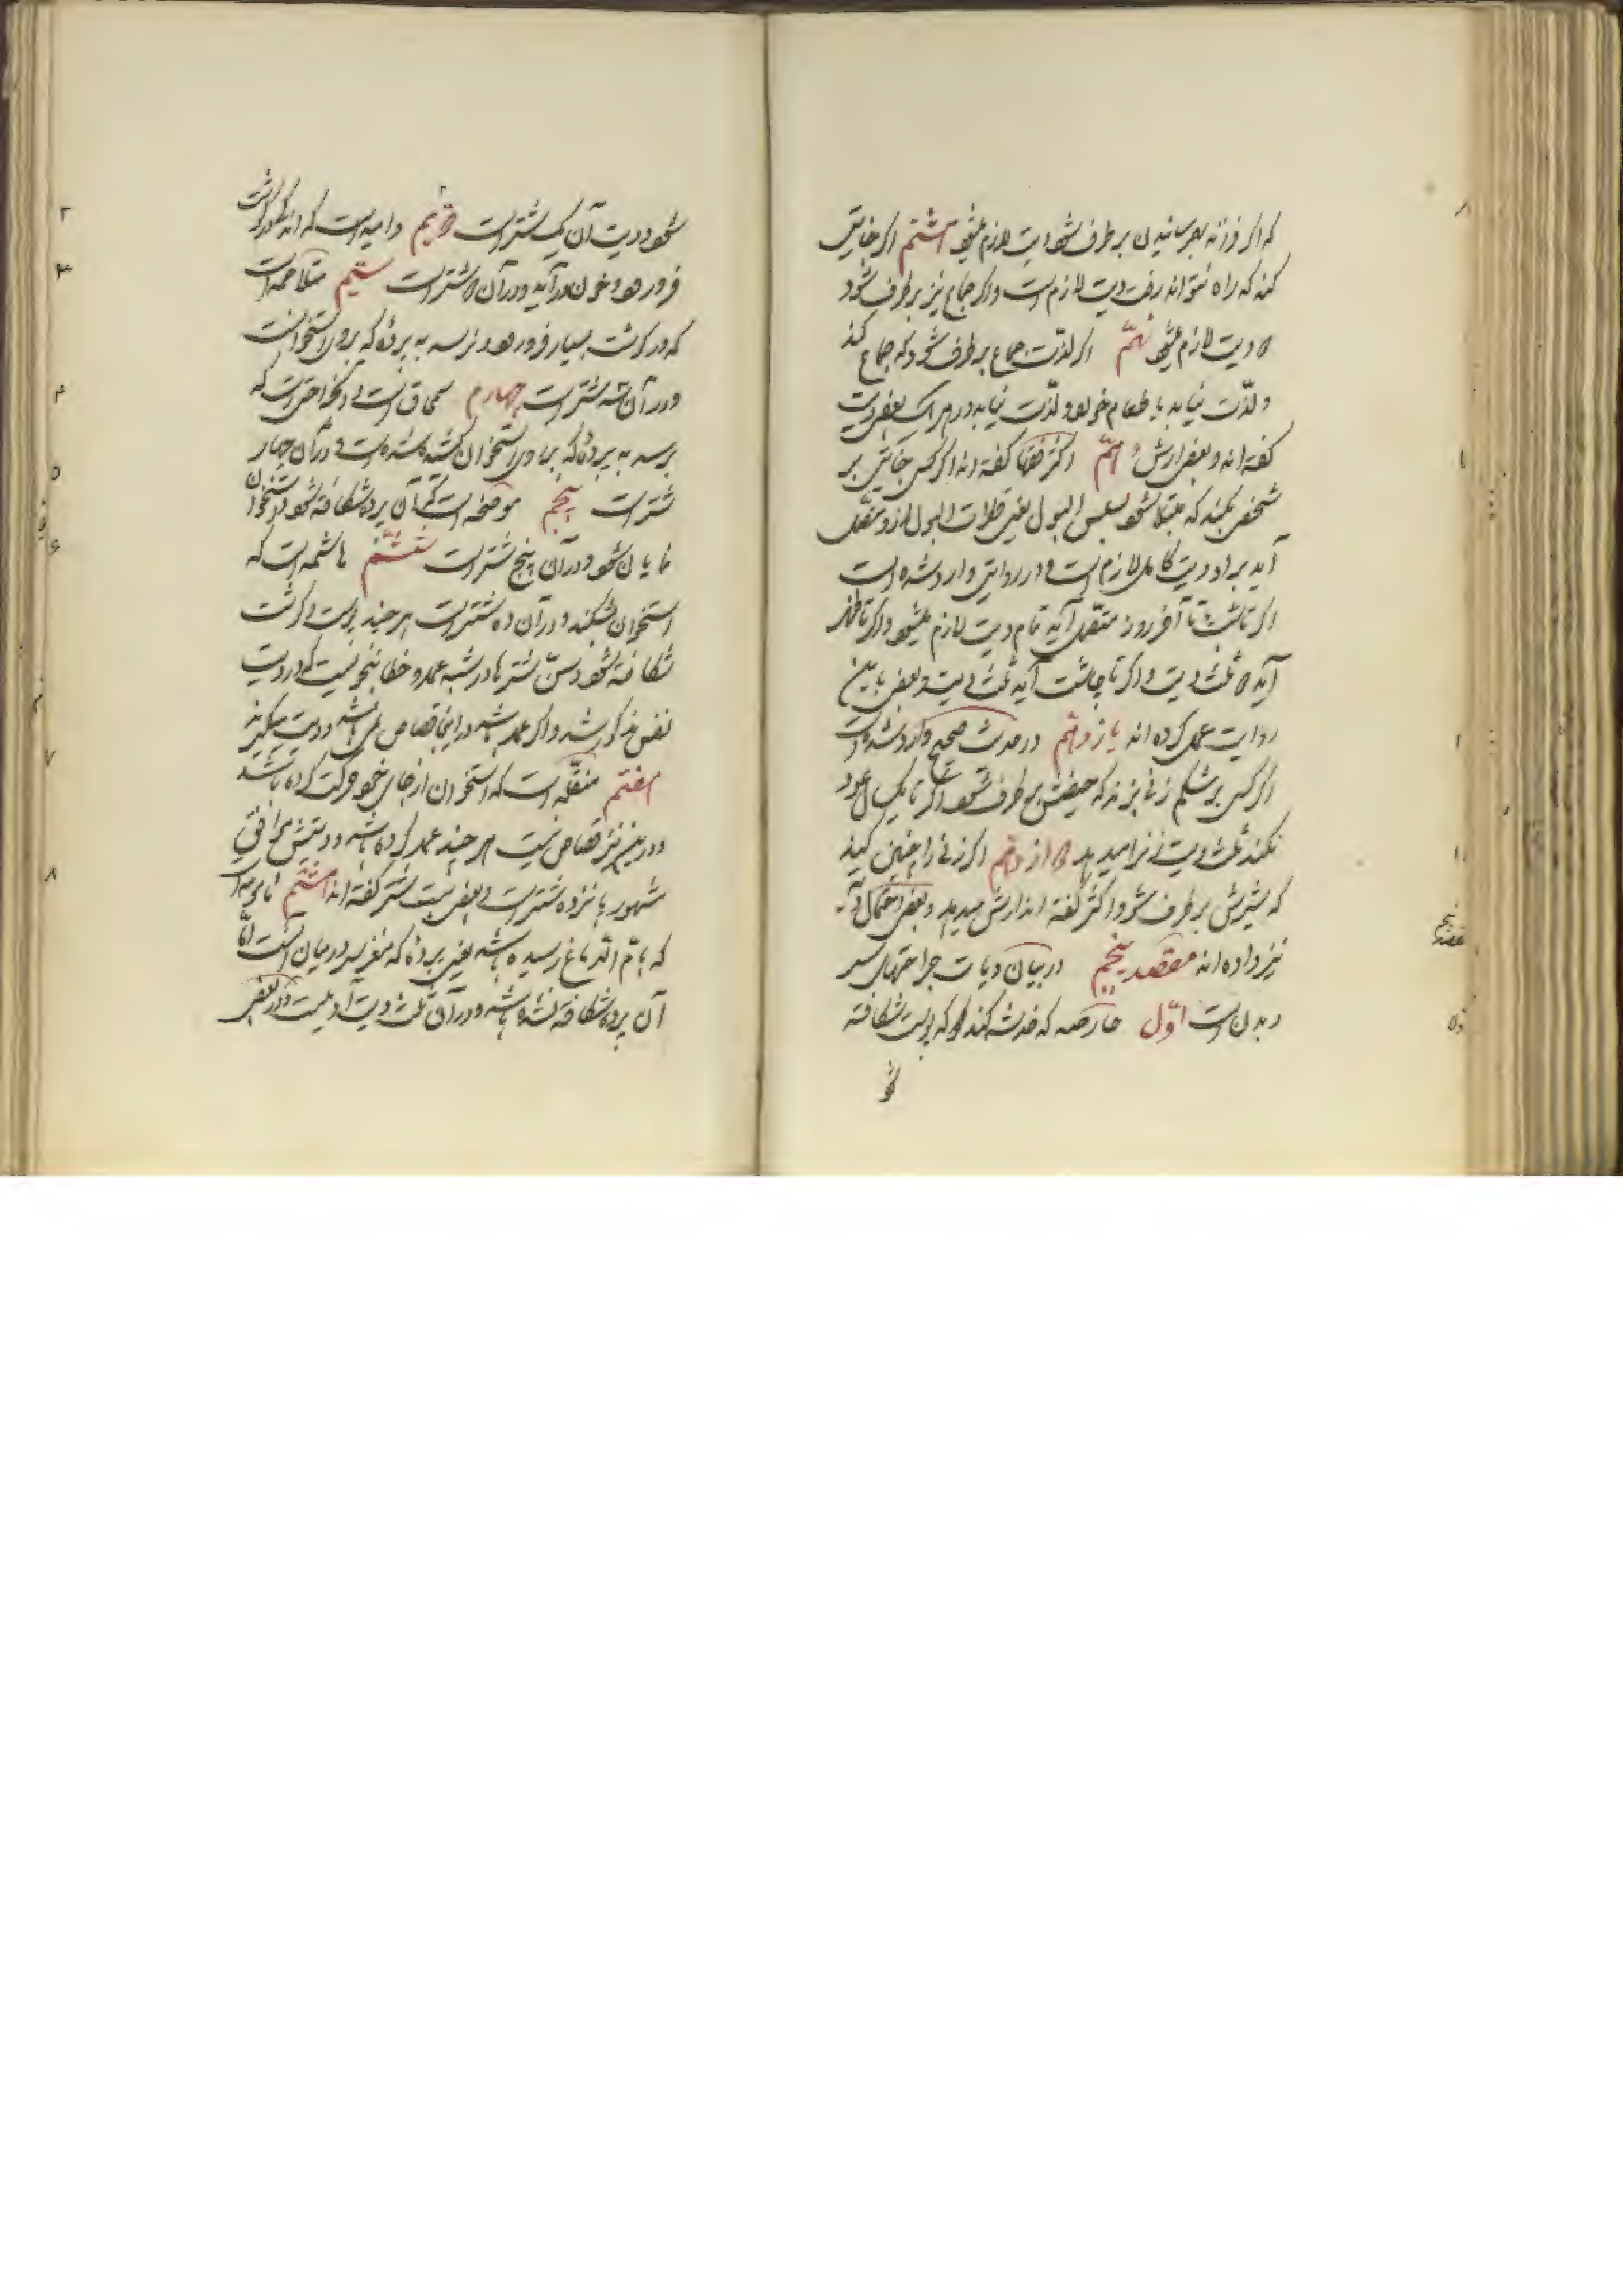 که اگر فرزند بهم رسانیدن برطرف شود دیت لازم میشود هشتم اگر جنایتی
کند که راه نتواند رفت دیت لازم است و اگر جماع نیز برطرف شود
دو دیت لازم میشود نهم اگر لذت جماع برطرف شود که جماع کند
و لذت نیابد یا طعام خورد و لذت نیابد در هر یک بعضی دیت
گفته‌اند و بعضی ارش دهم اکثر فقها گفته‌اند اگر کسی جنایتی بر
شخصی بکند که مبتلا شود بسلس البول یعنی قطرات البول از او متصل
آید بر او دیت کامل لازم است و در روایتی وارد شده است
اگر تا شب تا آخر روز متصل آید تمام دیت لازم میشود و اگر تا ظهر
آید دو ثلث دیت و اگر تا چاشت آید ثلث دیت و بعضی باین
روایت عمل کرده‌اند یازدهم در حدیث صحیح وارد شده است
اگر کسی بر شکم زنی بزند که حیضش برطرف شود اگر تا یکسال عود
نکند ثلث دیت زنرا میدهد دوازدهم اگر زنی را چنین کند
که شیرش برطرف شود اکثر گفته‌اند ارش میدهد و بعضی احتمال دیه
نیز داده‌اند مقصد پنجم در بیان دیات جراحتهای سر
و بدن است اول حارصه که خدشه کند که پوست شکافته
شو
شود و دیت آن یک شتر است دویم دامیه است که اندکی در گوشت
فرو رود و خون درآید و در آن دو شتر است سیم متلاحمه است
که در گوشت بسیار فرو رود و نرسد به پرده که بر روی استخوانست
و در آن سه شتر است چهارم سمحاق است و آن جراحتی است که
برسد به پرده که بر روی استخوان کشیده شده است و در آن چهار
شتر است پنجم موضحه است که آن پرده شکافته شود و استخوان
نمایان شود و در آن پنج شتر است ششم هاشمه است که
استخوان بشکند و در آن ده شتر است هر چند پوست و گوشت
شکافته نشود و سن شترها در شبه عمد و خطا بنحویست که در دیت
نفس مذکور شد و اگر عمد باشد در اینجا قصاص نمی‌باشد و دیت میگیرند
هفتم منقله است که استخوان از جای خود حرکت کرده باشد
و در این نیز قصاص نیست هر چند عمد کرده باشد و دیتش موافق
مشهور پانزده شتر است و بعضی بیست شتر گفته‌اند هشتم مأمومه است
که بام الدماغ رسیده باشد یعنی پرده که مغز سر در میان آنست اما
آن پرده شکافته نشده باشد و در آن ثلث دیت آدمیست و در بعضی
۲
۳
۴
۵
۶
۷
۸